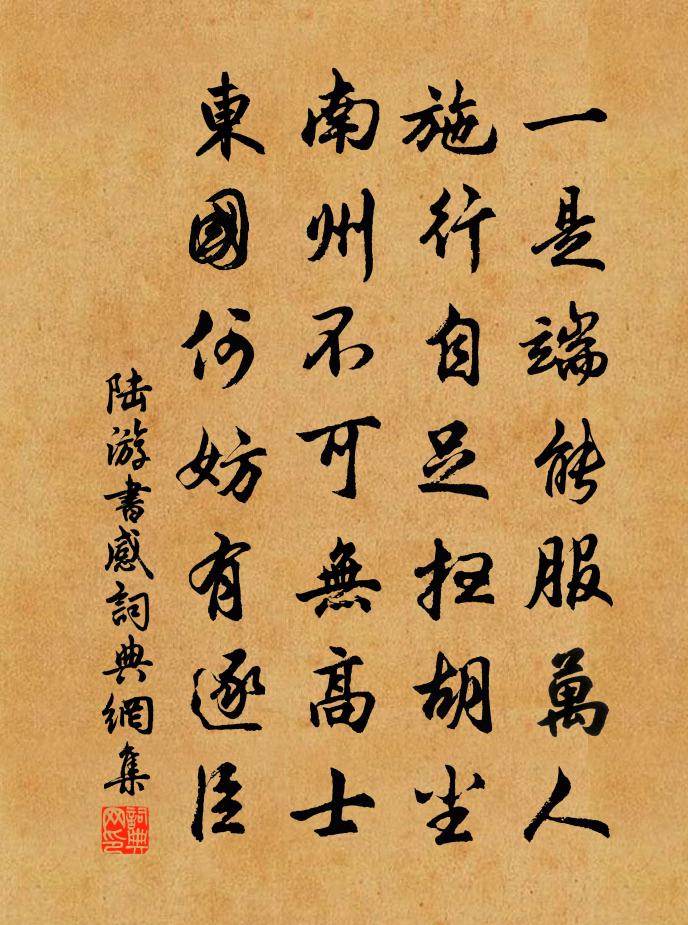 一是端能服萬人
施行自足扫胡尘
南州不可無高士
東國何妨有逐臣
陆游書感詞典網集
詞典网印